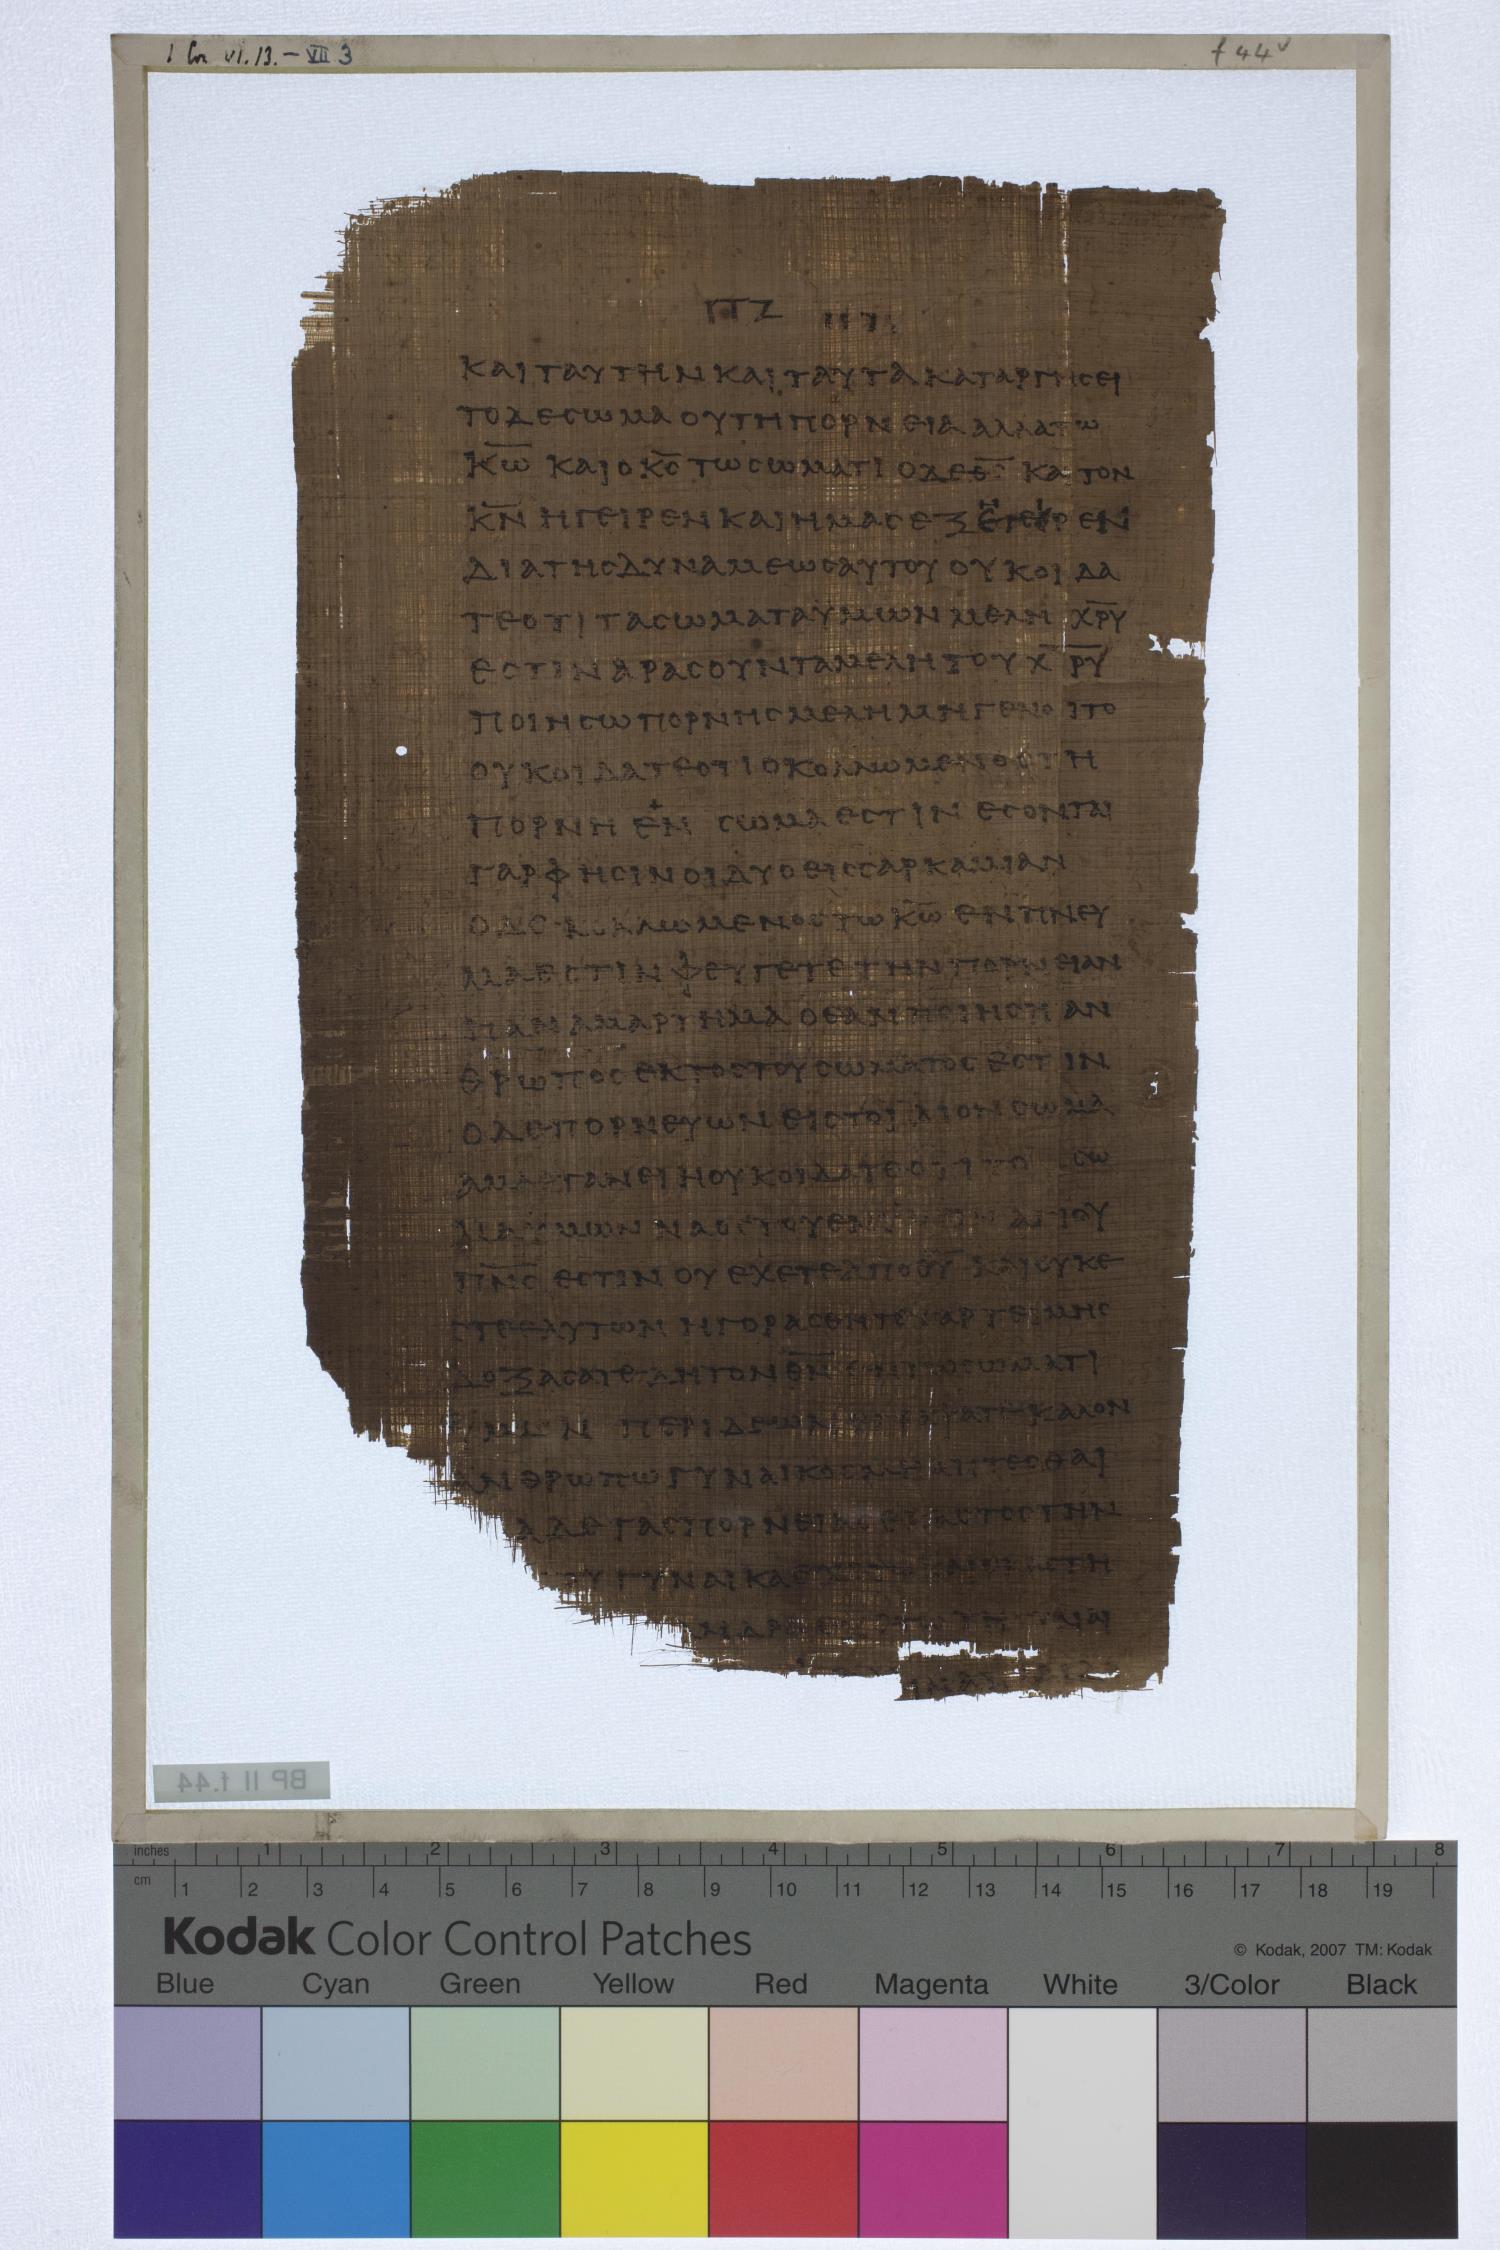 1 Cor VI.13.–VII 3
f 44v
ΠΖ
ΚΑΙ ΤΑΥΤΗΝ ΚΑΙ ΤΑΥΤΑ ΚΑΤΑΡΓΗСΕΙ
ΤΟ ΔΕ СΩΜΑ ΟΥ ΤΗ ΠΟΡΝΕΙΑ ΑΛΛΑ ΤΩ
Κ̅Ω̅ ΚΑΙ Ο Κ̅С̅ ΤΩ СΩΜΑΤΙ Ο ΔΕ ΚΑΙ ΤΟΝ
Κ̅Ν̅ ΗΓΕΙΡΕΝ ΚΑΙ ΗΜΑС
ΔΙΑ ΤΗС ΔΥΝΑΜΕΩС ΑΥΤΟΥ ΟΥΚ ΟΙΔΑ
ΤΕ ΟΤΙ ΤΑ СΩΜΑΤΑ ΥΜΩΝ ΜΕΛΗ Χ̅Ρ̅Υ̅
ΕСΤΙΝ ΑΡΑС ΟΥΝ ΤΑ ΜΕΛΗ ΤΟΥ Χ̅Ρ̅Υ̅
ΠΟΙΗСΩ ΠΟΡΝΗС ΜΕΛΗ ΜΗ ΓΕΝΟΙΤΟ
ΟΥΚ ΟΙΔΑΤΕ ΟΤΙ Ο ΚΟΛΛΩΜΕΝΟС ΤΗ
ΠΟΡΝΗ ΕΝ СΩΜΑ ΕСΤΙΝ ΕСΟΝΤΑΙ
ΓΑΡ ΦΗСΙΝ ΟΙ ΔΥΟ ΕΙС СΑΡΚΑ ΜΙΑΝ
Ο ΔΕ ΚΟΛΛΩΜΕΝΟС ΤΩ Κ̅Ω̅ ΕΝ ΠΝΕΥ
ΜΑ ΕСΤΙΝ ΦΕΥΓΕΤΕ ΤΗΝ ΠΟΡΝΕΙΑΝ
ΠΑΝ ΑΜΑΡΤΗΜΑ Ο ΕΑΝ ΠΟΙΗСΗ ΑΝ
ΘΡΩΠΟС ΕΚΤΟС ΤΟΥ СΩΜΑΤΟС ΕСΤΙΝ
Ο ΔΕ ΠΟΡΝΕΥΩΝ ΕΙС ΤΟ ΙΔΙΟΝ СΩΜΑ
ΑΜΑΡΤΑΝΕΙ Η ΟΥΚ ΟΙΔΑΤΕ ΟΤΙ ΤΟ СΩ
ΜΑ ΥΜΩΝ ΝΑΟС ΤΟΥ ΕΝ ΑΓΙΟΥ
Π̅Ν̅С̅ ΕСΤΙΝ ΟΥ ΕΧΕΤΕ ΑΠΟ Θ̅Υ̅ ΚΑΙ ΟΥΚ Ε
СΤΕ ΕΑΥΤΩΝ ΗΓΟΡΑСΘΗΤΕ ΓΑΡ ΤΕΙΜΗС
ΔΟΞΑСΑΤΕ ΔΗ ΤΟΝ Θ̅Ν̅ СΩΜΑΤΙ
ΥΜΩΝ ΠΕΡΙ ΔΕ ΩΝ ΕΓΡΑΨΑΤΕ ΚΑΛΟΝ
ΑΝΘΡΩΠΩ ΓΥΝΑΙΚΟС ΜΗ ΑΠΤΕСΘΑΙ
Α ΔΕ ΤΑС ΠΟΡΝΕΙΑС ΕΚΑСΤΟС ΤΗΝ
ΤΟΥ ΓΥΝΑΙΚΑ ΤΗ
BP II f.44
inches 1 2 3 4 5 6 7 8
cm 1 2 3 4 5 6 7 8 9 10 11 12 13 14 15 16 17 18 19
Kodak Color Control Patches
© Kodak, 2007 TM: Kodak
Blue Cyan Green Yellow Red Magenta White 3/Color Black